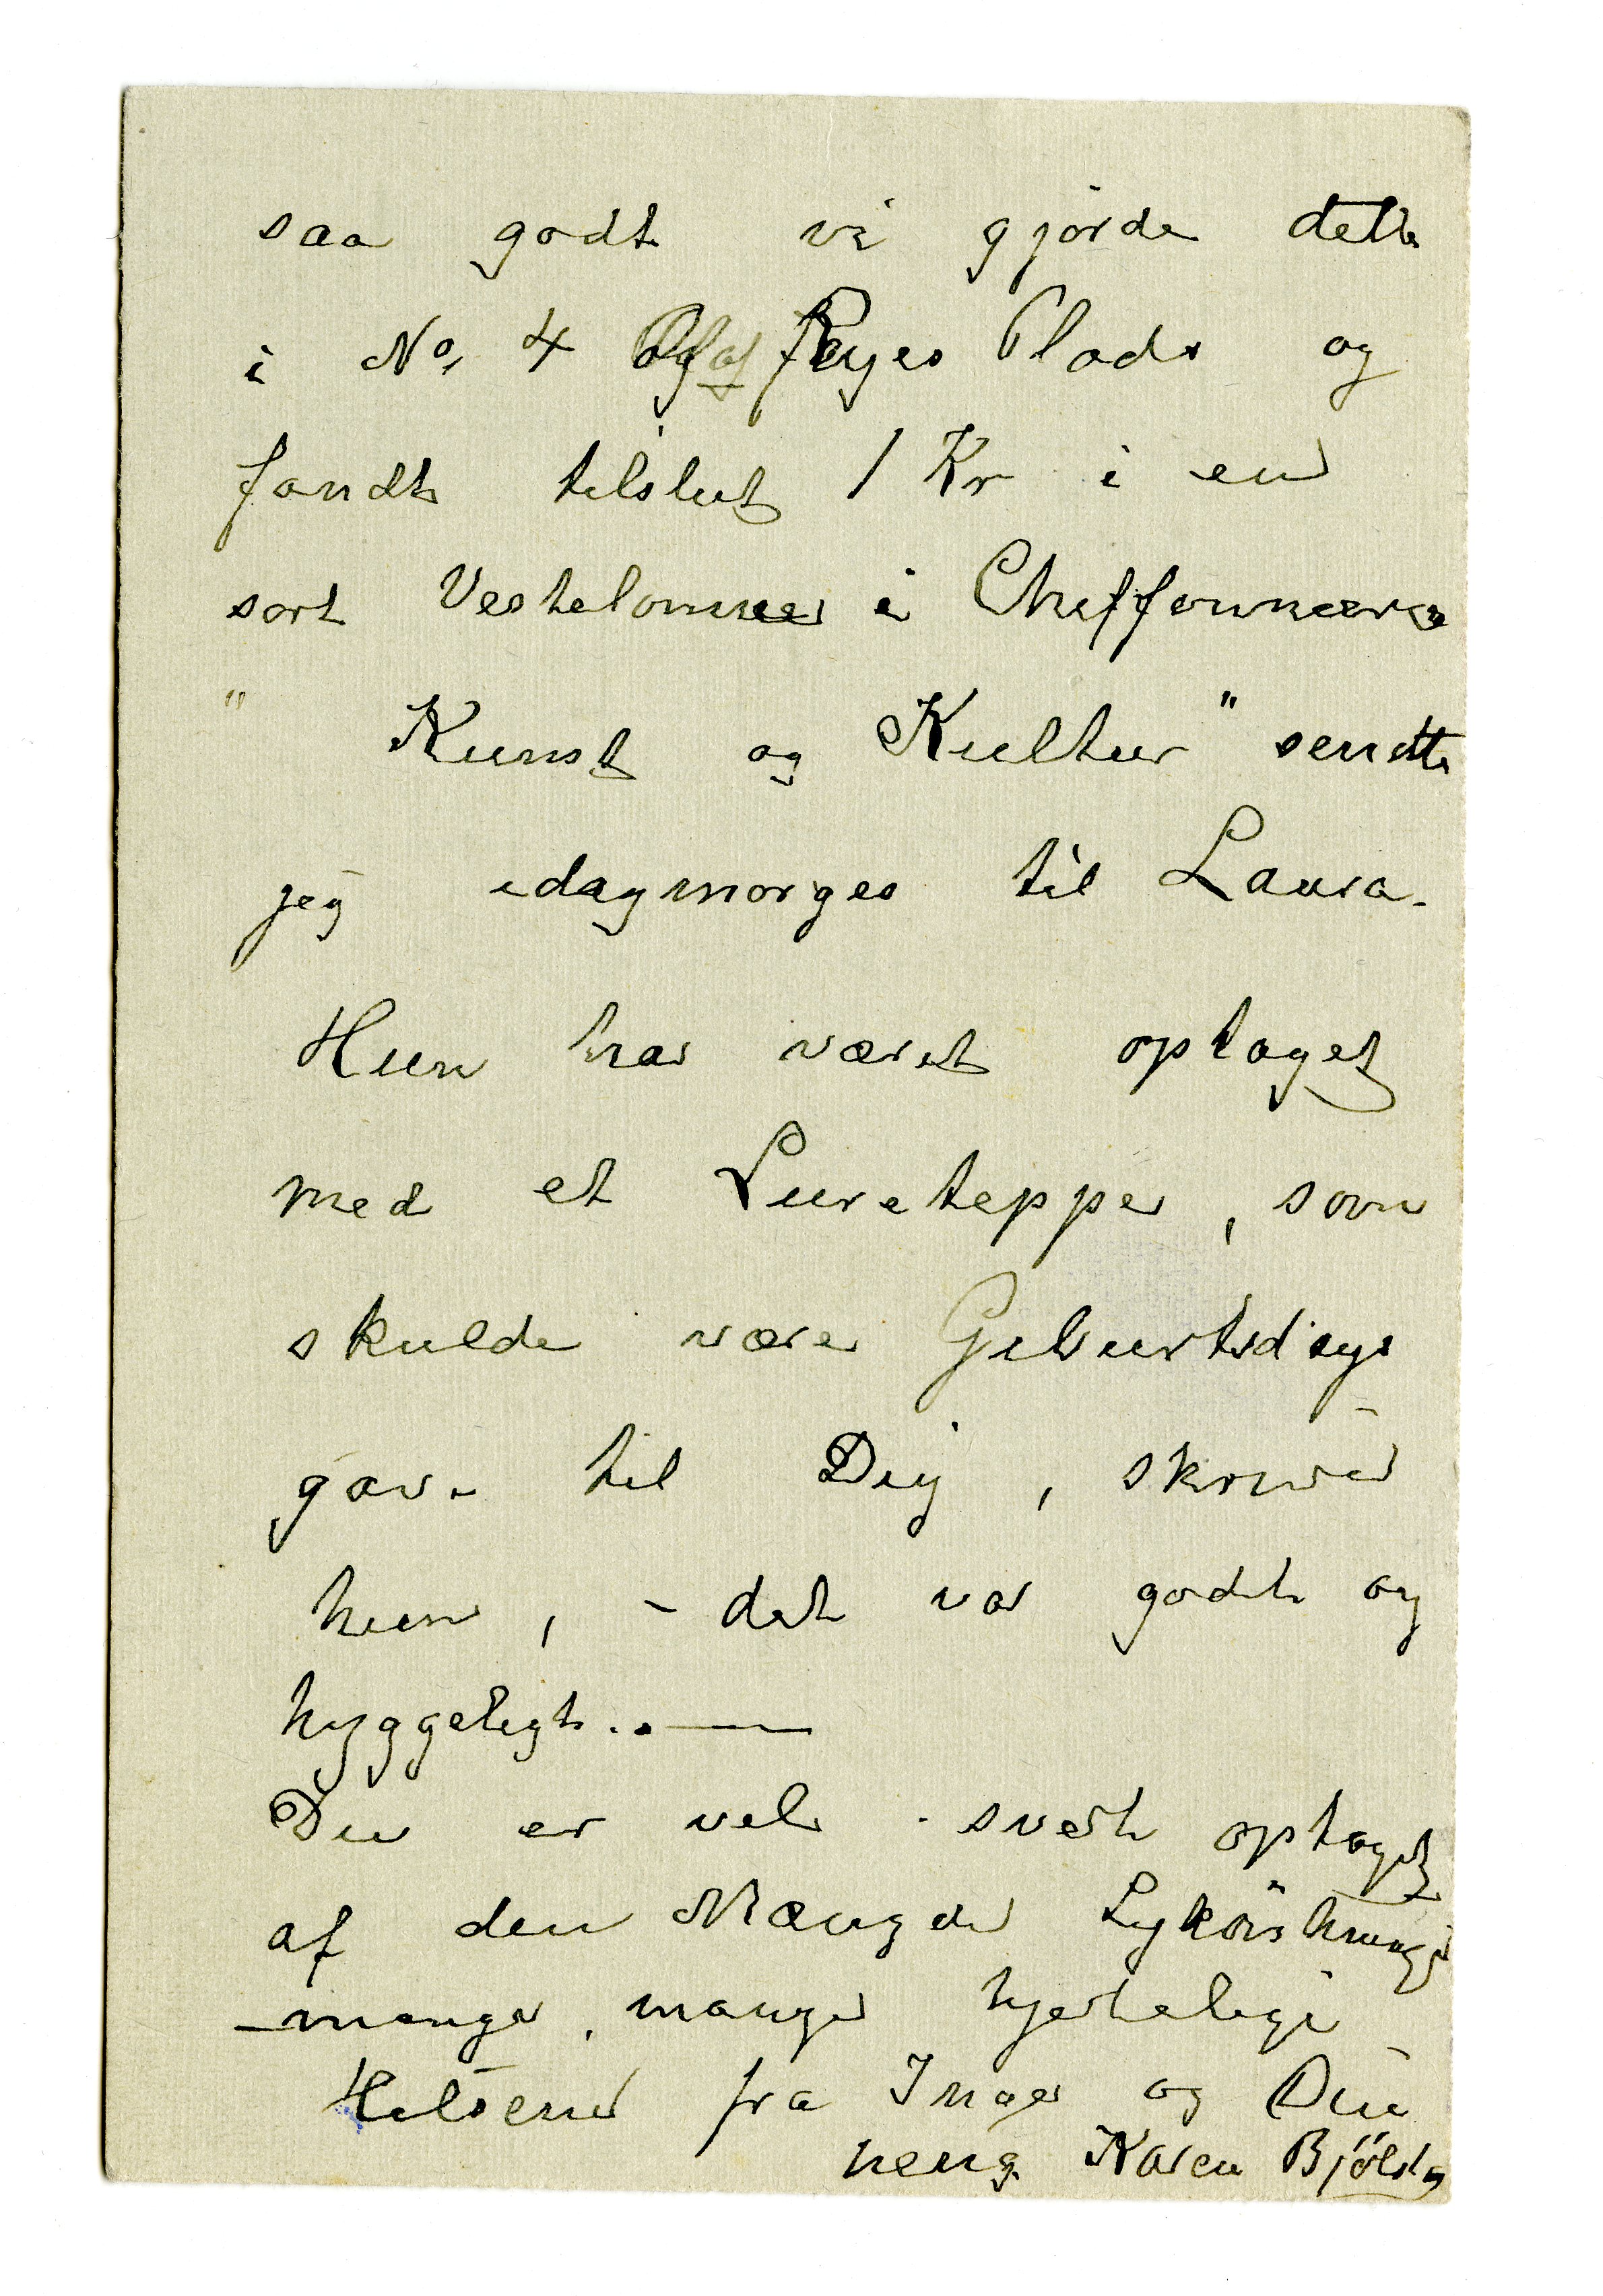 saa godt vi gjörde dette
i No 4 Olaf Ryes Plads og
fandt tilslut 1 Kr i en
sort Vestelomme i Cheffonneren
" Kunst og Kultur" sendte
jeg idagmorges til Laura.
Hun har været optaget
med et Lureteppe, som
skulde være Geburtsdags
gave til Dig, skrev
hun, - det var godt og
hyggeligt. . —
Du er vel svært optaget
af den Mængde Lykönskninger
- mange, mange hjertelige
Hilsener fra Inger og Din
heng. Karen Bjölstad